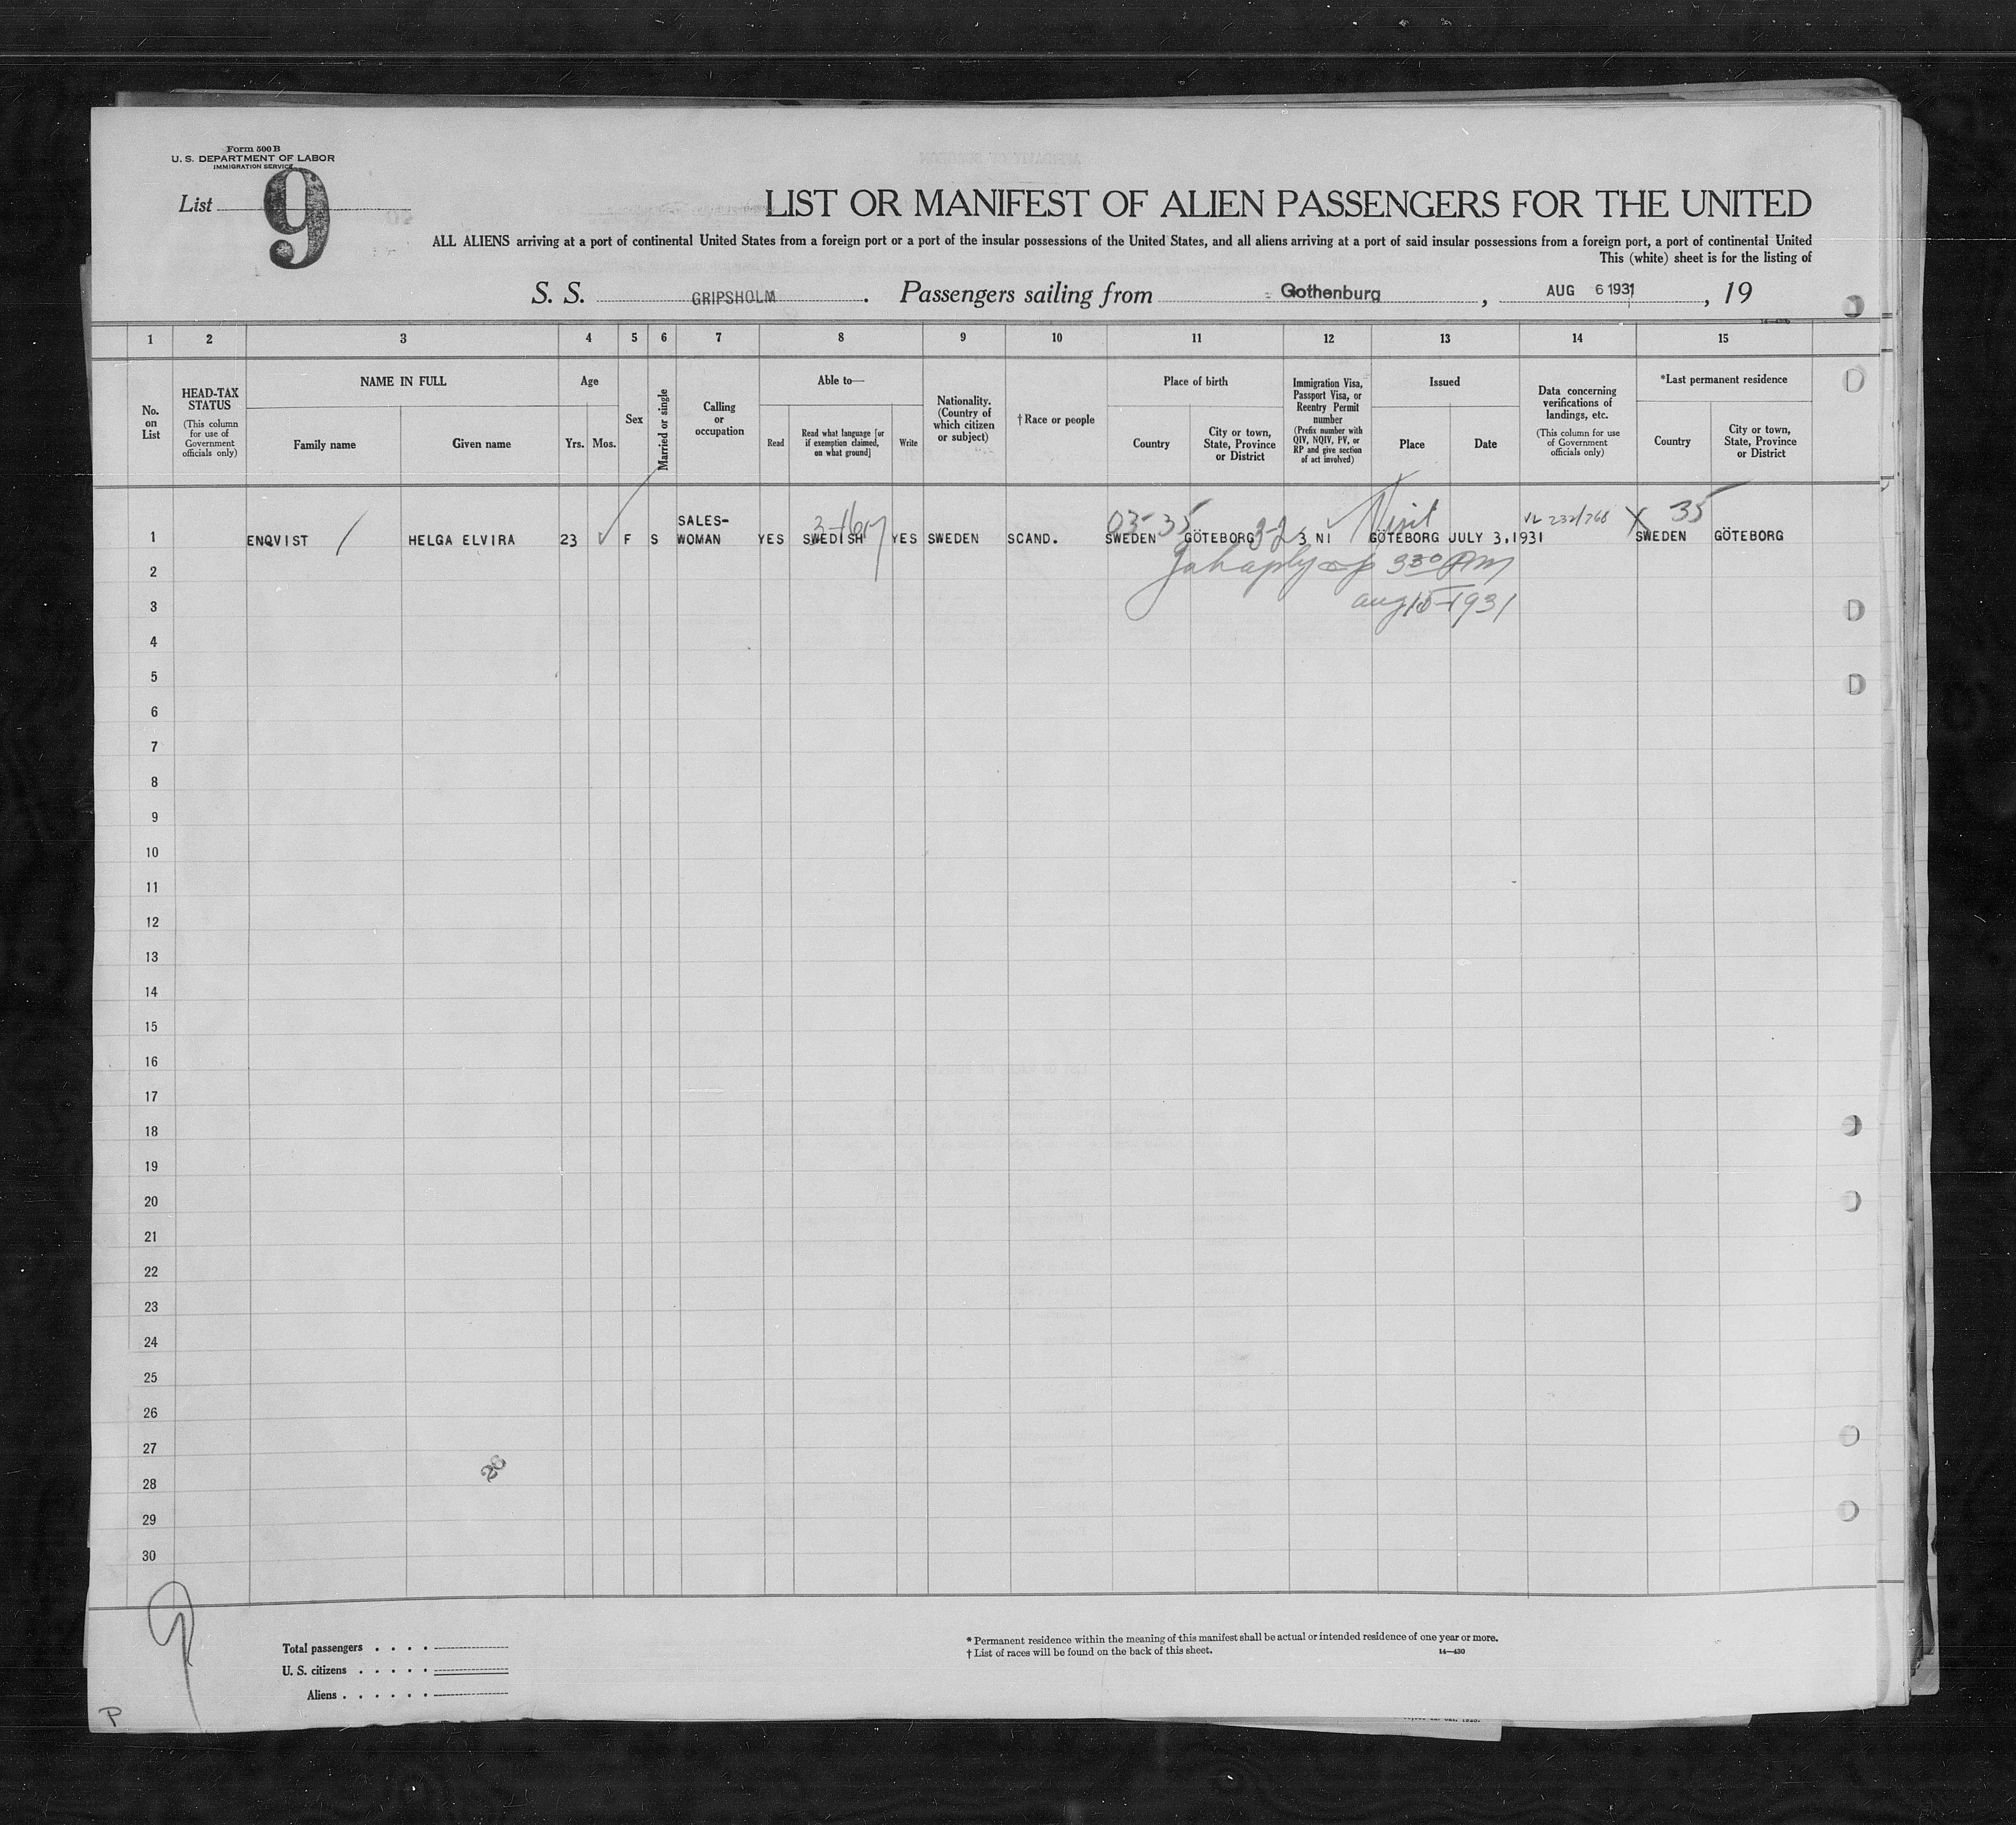 Form 500 B
U. S. DEPARTMENT OF LABOR
IMMIGRATION SERVICE
List 9
LIST OR MANIFEST OF ALIEN PASSENGERS FOR THE UNITED
ALL ALIENS arriving at a port of continental United States from a foreign port or a port of the insular possessions of the United States, and all aliens arriving at a port of said insular possessions from a foreign port, a port of continental United
This (white) sheet is for the listing of
S. S. GRIPSHOLM. Passengers sailing from Gothenburg, AUG 6 1931, 19
1 2 3 4 5 6 7 8 9 10 11 12 13 14 15
No. on List
HEAD-TAX STATUS (This column for use of Government officials only)
NAME IN FULL
Family name
Given name
Age
Yrs. Mos.
Sex
Married or single
Calling or occupation
Able to—
Read
Read what language [or if exemption claimed, on what ground]
Write
Nationality. (Country of which citizen or subject)
†Race or people
Place of birth
Country
City or town, State, Province or District
Immigration Visa, Passport Visa, or Reentry Permit number (Prefix number with QIV, NQIV, PV, or RP and give section of act involved)
Issued
Place
Date
Data concerning verifications of landings, etc. (This column for use of Government officials only)
*Last permanent residence
Country
City or town, State, Province or District
03-35 Visit 35
1 ENQVIST HELGA ELVIRA 23 F S SALES-WOMAN YES SWEDISH YES SWEDEN SCAND. SWEDEN GÖTEBORG 3-2 3 NI GÖTEBORG JULY 3,1931 SWEDEN GÖTEBORG
2 330 PM
3 aug 15-1931
4
5
6
7
8
9
10
11
12
13
14
15
16
17
18
19
20
21
22
23
24
25
26
27
28
29
30
9
Total passengers . . . .
U. S. citizens . . . . .
Aliens . . . . . .
* Permanent residence within the meaning of this manifest shall be actual or intended residence of one year or more.
† List of races will be found on the back of this sheet.
14—430
P